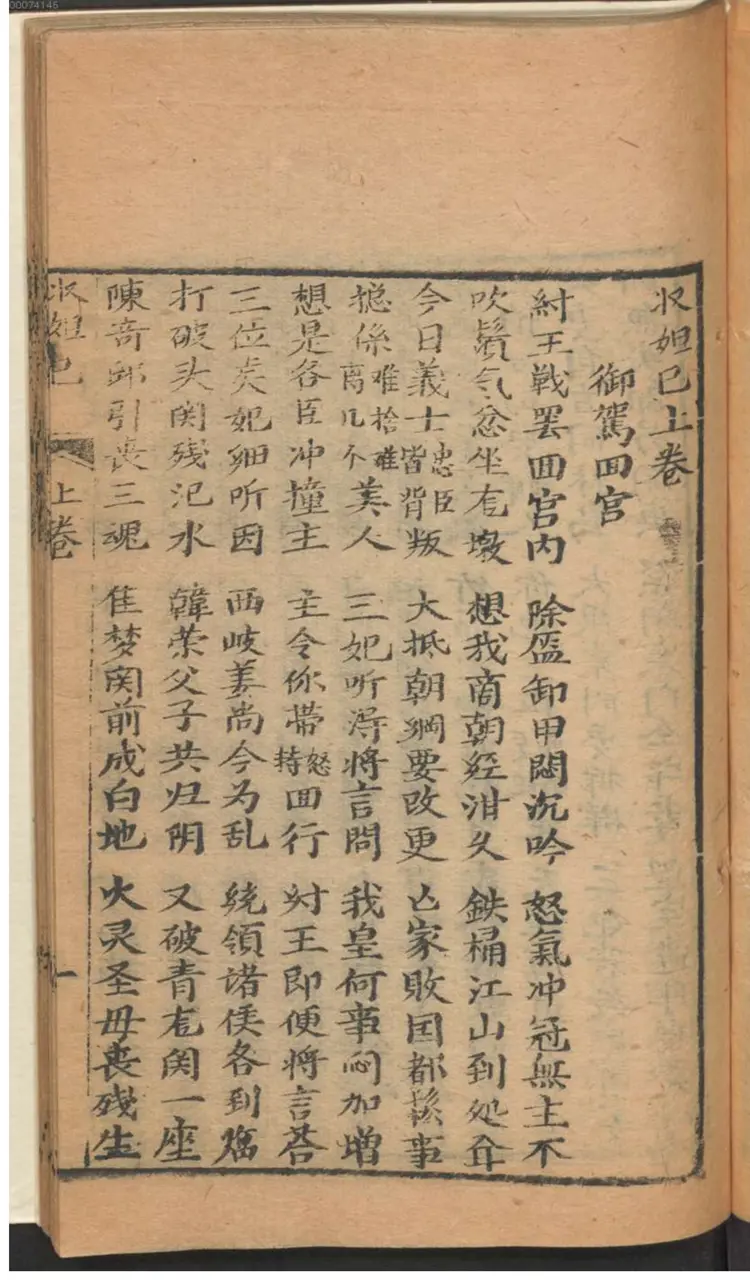 00074145
収妲己上卷
御駕囬宫
紂王戦罢囬宫内 除盔卸甲悶沉吟 怒氣冲冠無主不
吹鬚气忿坐尨墩 想我商朝經泔久 鉄桶江山到処弃
今日義士忠臣皆背叛 大抵朝綱要改更 亾家敗囯都䯳事
揔係难捨难离几不美人 三妃听淂将言問 我皇何事闷加增
想是各臣冲撞主 主令你带怒持囬行 紂王即便将言荅
三位爱妃细听因 西岐姜尚今为乱 統領諸侯各到臨
打破头関残汜水 韓荣父子共归阴 又破青尨関一座
陳奇郑引丧三魂 佳梦関前成白地 火灵圣母丧残生
収妲己 上卷 一